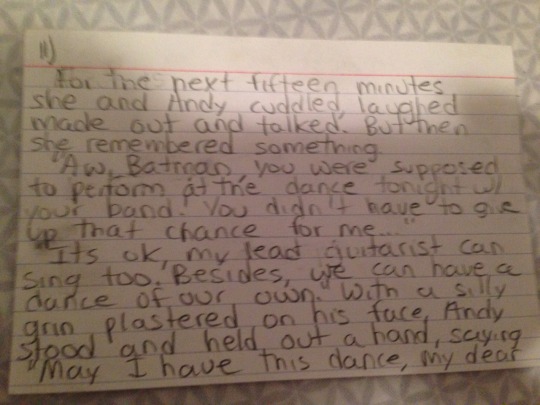 11)
For the next fifteen minutes,
she and Andy cuddled, laughed,
made out and talked. But then
she remembered something.
"Aw, Batman, you were supposed
to perform at the dance tonight w/
your band. You didn't have to give
up that chance for me..."
"Its ok, my lead guitarist can
sing too. Besides, we can have a
dance of our own." With a silly
grin plastered on his face, Andy
stood and held out a hand, saying
"May I have this dance, my dear